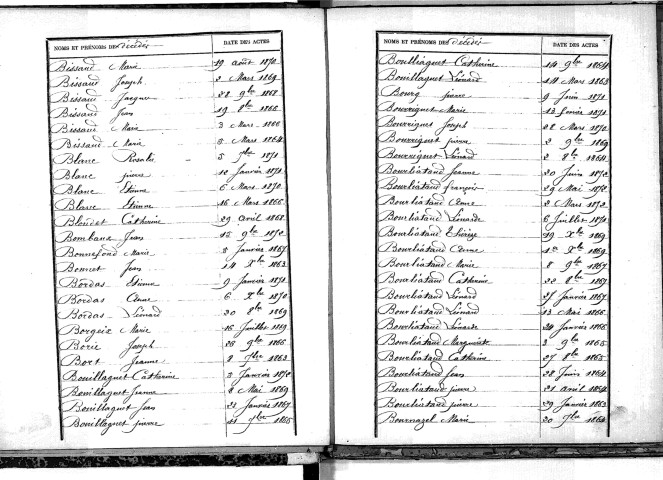 NOMS ET PRÉNOMS DES décédés DATE DES ACTES
Bissaud Marie 19 août 1870
Bissaud Joseph 2 Mars 1869
Bissaud Jacques 28 9bre 1868
Bissaud Jean 19 8bre 1866
Bissaud Marie 3 Mars 1866
Bissaud Marie 5 Mars 1864
Blanc Rosalie 5 7bre 1871
Blanc pierre 10 Janvier 1871
Blanc Etienne 6 Mars 1870
Blanc Etienne 16 Mars 1866
Blondet Catherine 29 avril 1868
Bombaux Jean 15 9bre 1872
Bonnefond Marie 5 Janvier 1867
Bonnet Jean 14 Xbre 1863
Bordas Etienne 9 Janvier 1871
Bordas Anne 6 Xbre 1870
Bordas Léonard 20 8bre 1869
Borgeix Marie 16 Juillet 1869
Borie Joseph 26 9bre 1866
Bort Jeanne 2 7bre 1863
Bouillaguet Catherine 5 Janvier 1872
Bouillaguet Jeanne 8 Mai 1869
Bouillaguet Jean 21 Janvier 1867
Bouillaguet pierre 11 7bre 1866
NOMS ET PRÉNOMS DES décédés DATE DES ACTES
Bouillaguet Catherine 14 9bre 1864
Bouillaguet Léonard 14 Mars 1863
Bourg pierre 9 Juin 1871
Bourriguet Marie 13 février 1871
Bourriguet Joseph 28 Mars 1870
Bourriguet pierre 2 9bre 1869
Bourriguet Léonard 2 8bre 1864
Bourliataud Jeanne 20 Juin 1872
Bourliataud françois 29 Mai 1872
Bourliataud Anne 2 Mars 1872
Bourliataud Léonarde 6 Juillet 1871
Bourliataud Thérèse 19 Xbre 1869
Bourliataud Anne 10 Xbre 1869
Bourliataud Marie 8 9bre 1867
Bourliataud Catherine 22 8bre 1867
Bourliataud Léonard 27 Janvier 1867
Bourliataud Léonard 13 Mai 1866
Bourliataud Léonarde 24 Janvier 1866
Bourliataud Marguerite 3 9bre 1865
Bourliataud Catherine 27 8bre 1865
Bourliataud Jean 28 Juin 1864
Bourliataud pierre 21 avril 1864
Bourliataud pierre 29 Janvier 1863
Bournazel Marie 20 7bre 1863